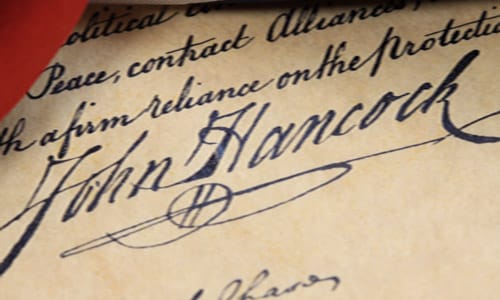 olitical
Peace, contract Alliances,
th a firm reliance on the protectio
John Hancock